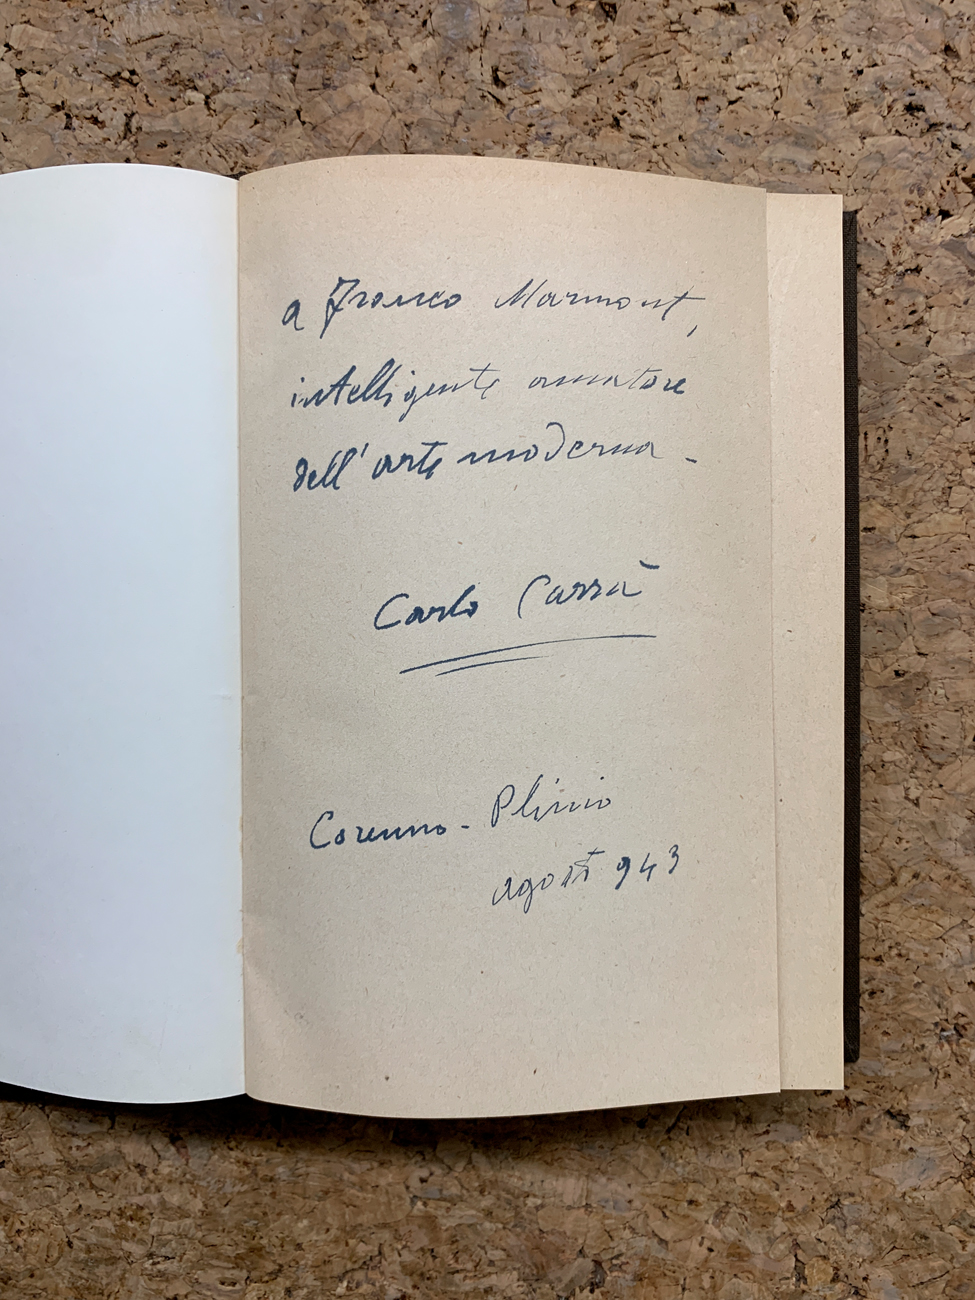 a Franco Marmont,
intelligente amatore
dell'arte moderna -
Carlo Carrà
Corenno - Plinio
agosto 943